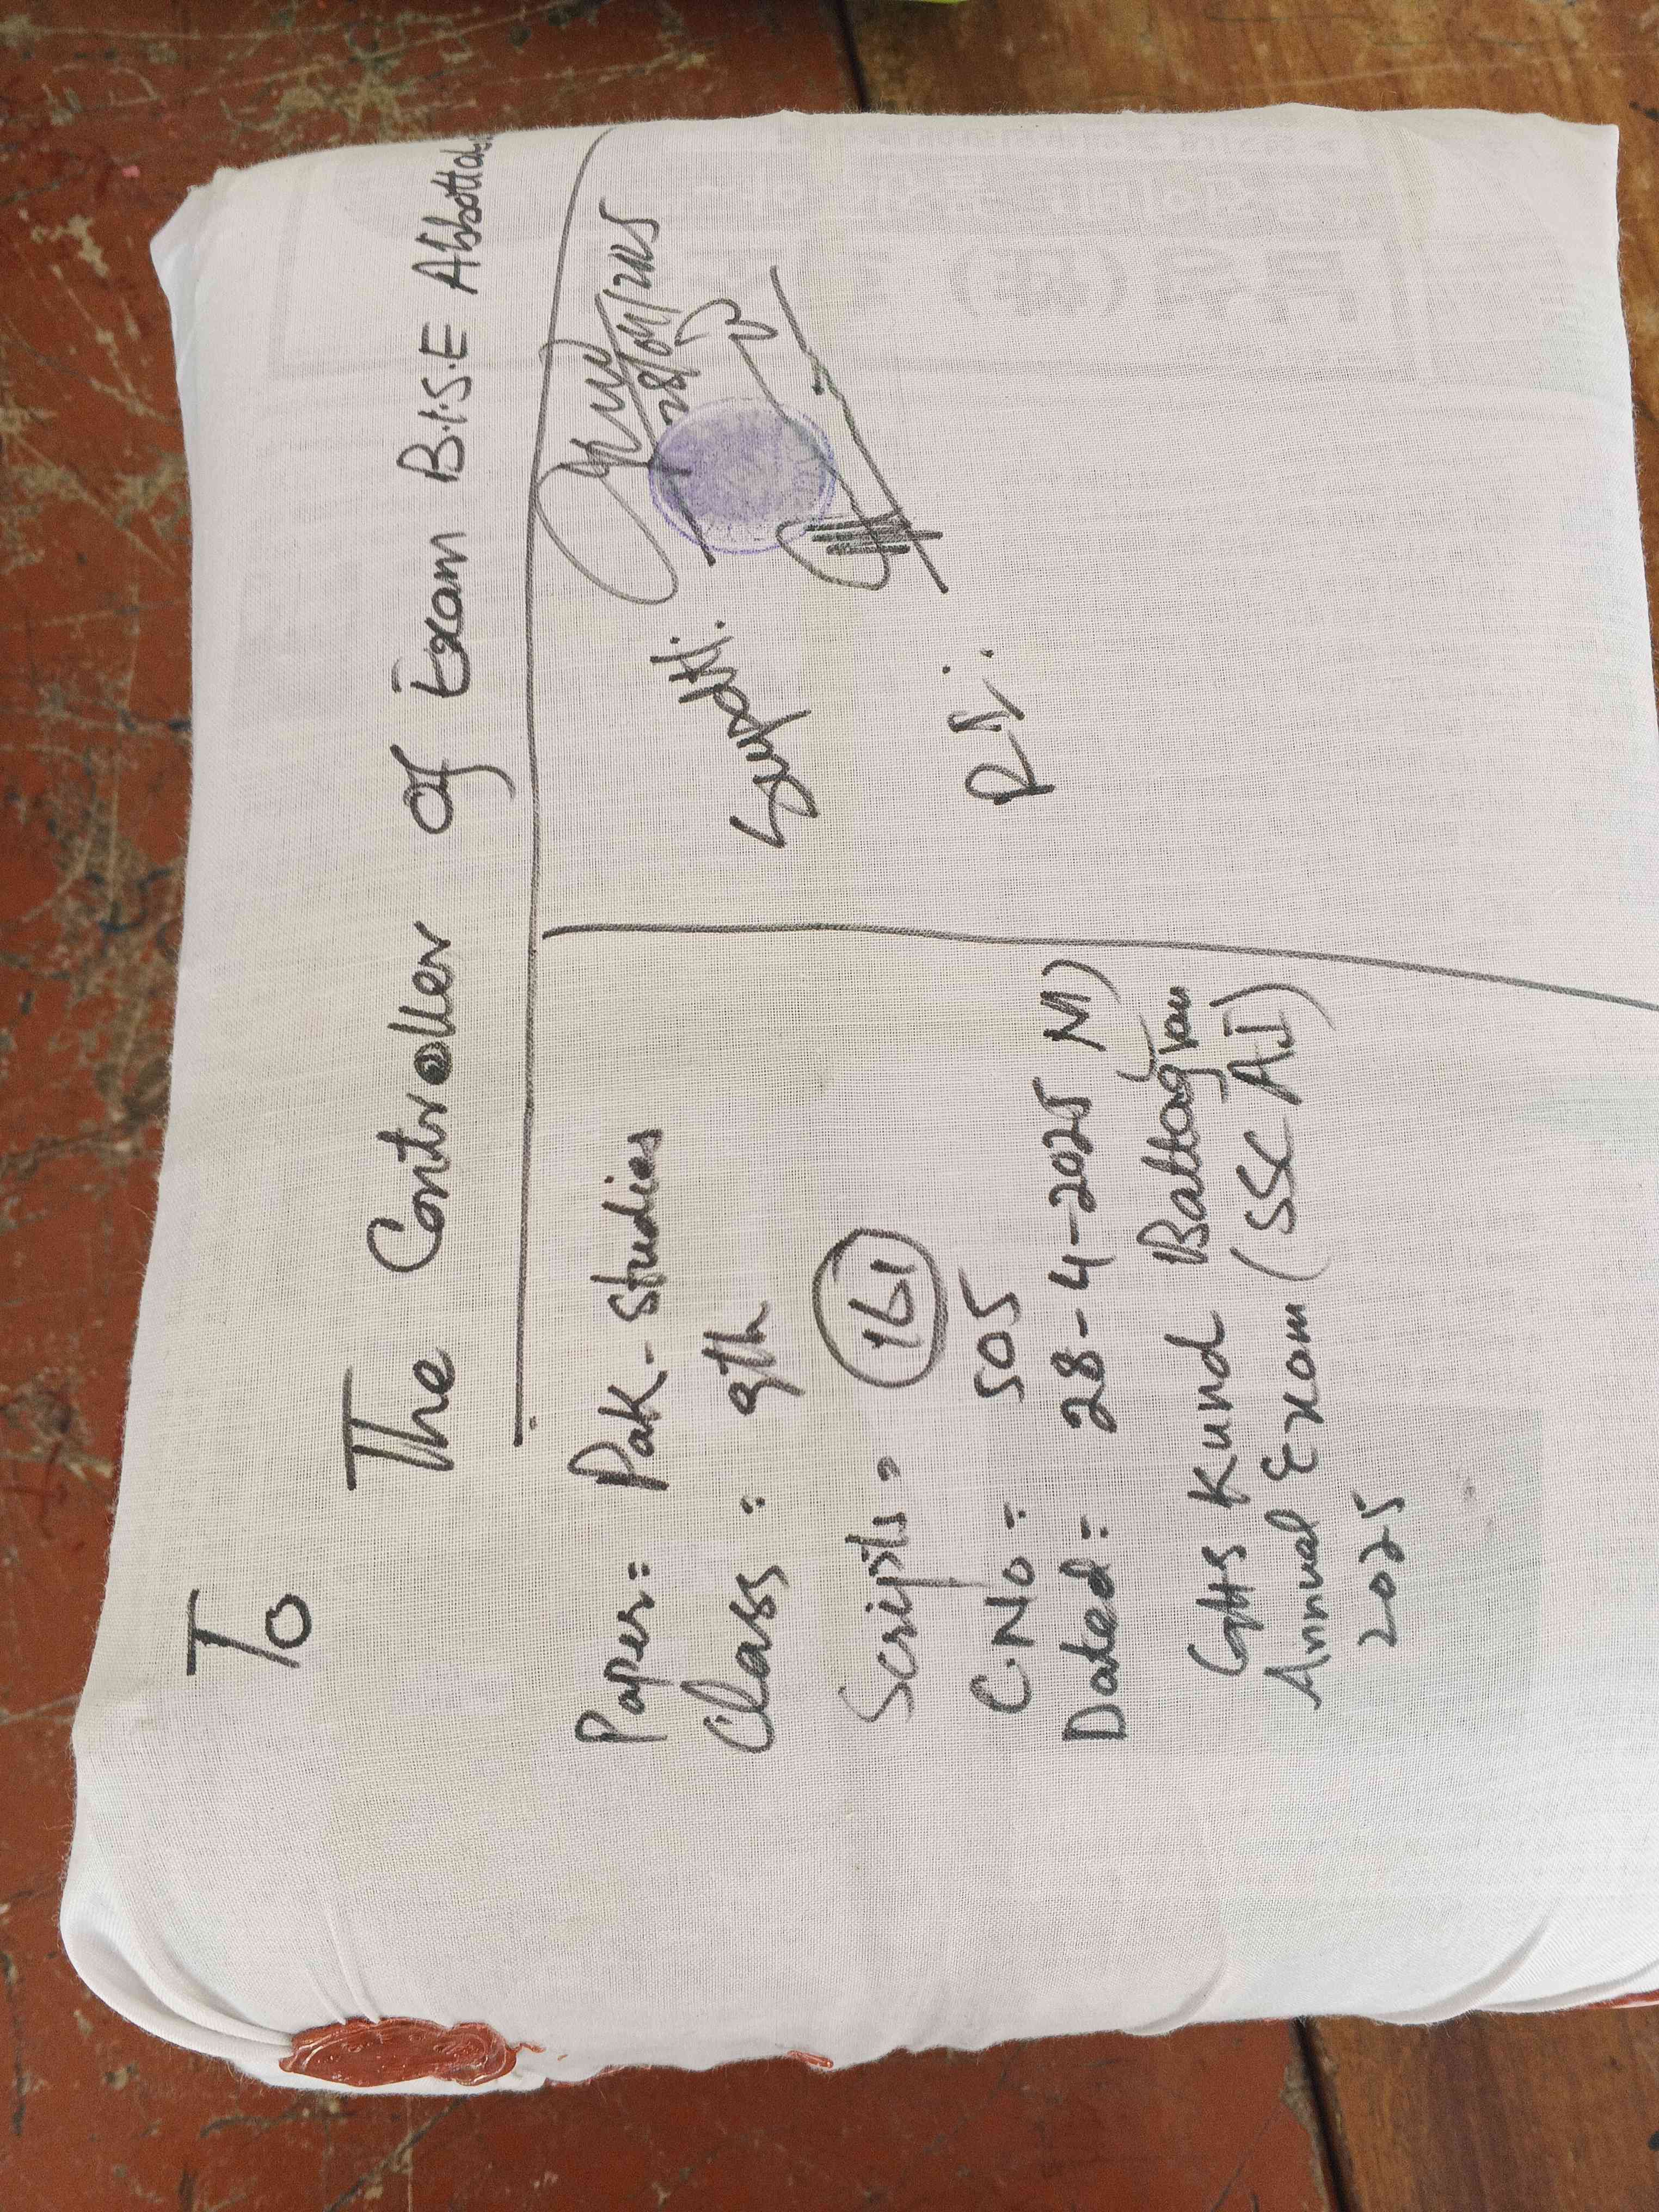 To
The Controller of Exam B.I.S.E Abbottab
Paper= Pak-studies
Class = 9th
Scripts = 161
C.No = 505
Dated = 28-4-2025 M)
GHS Kund Battagram
Annual Exam (SSC A.I)
2025
Supdtt:
28/04/2025
R.I: